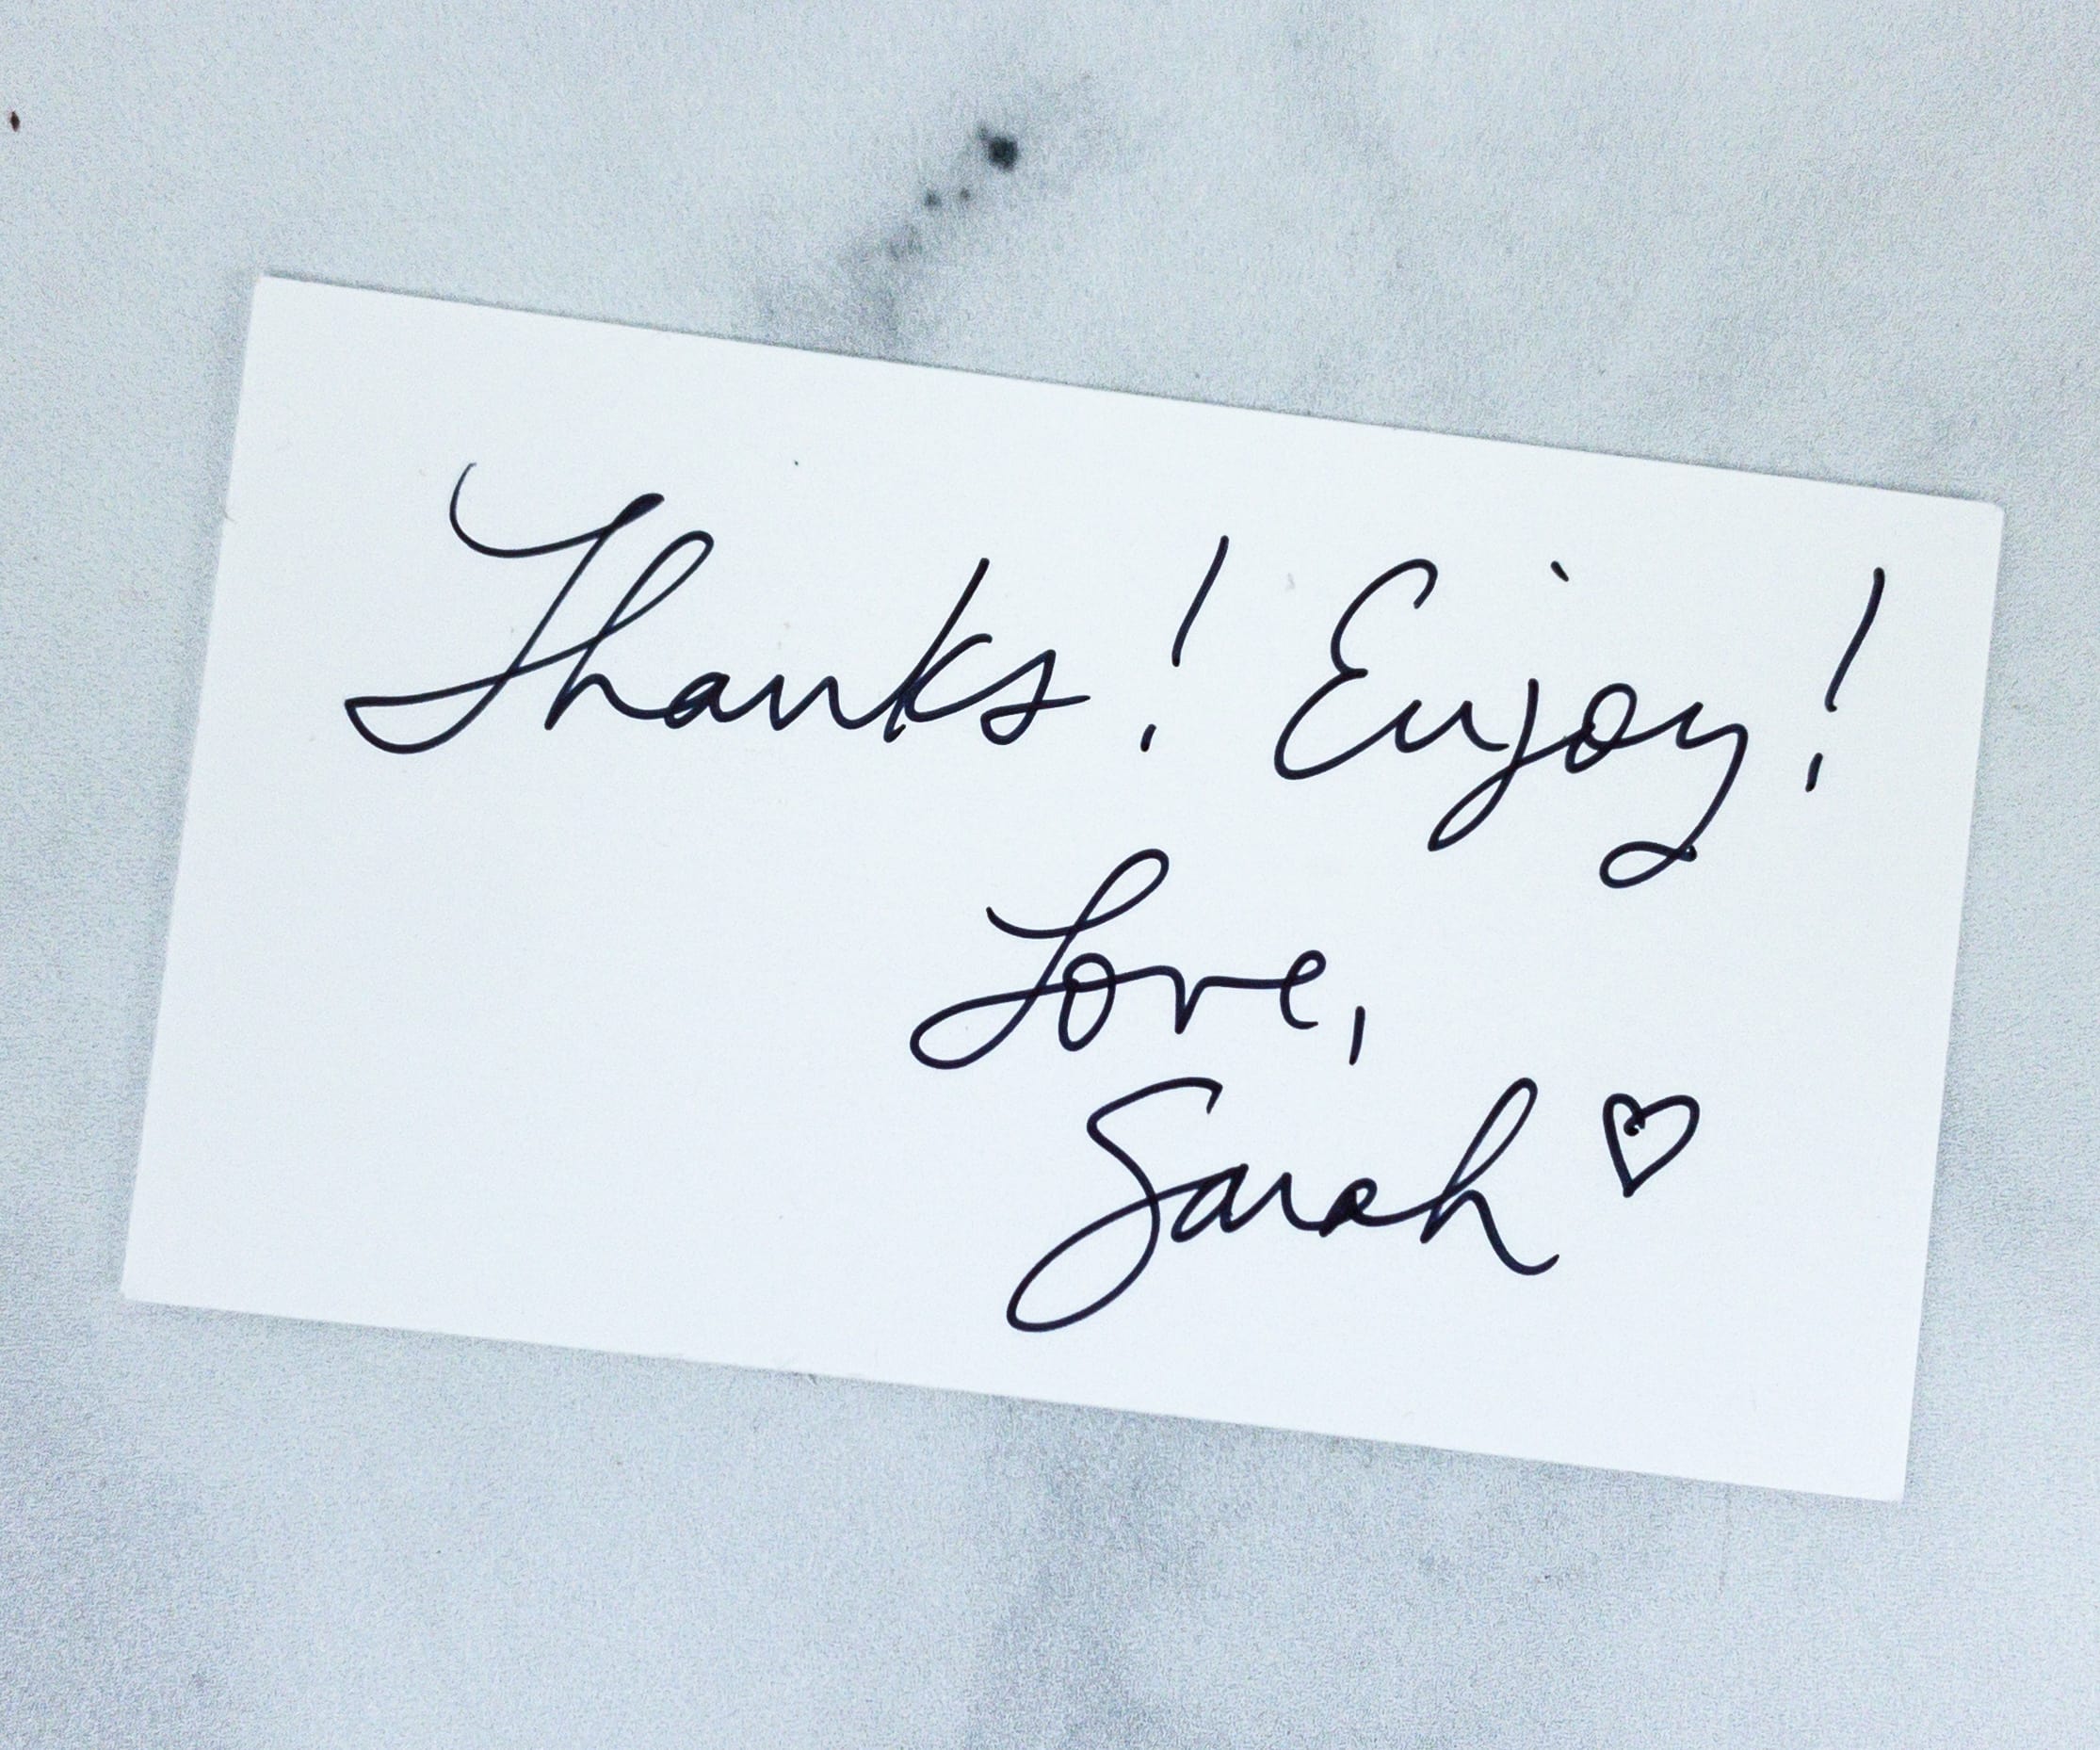 Thanks! Enjoy!
Love,
Sarah ♡